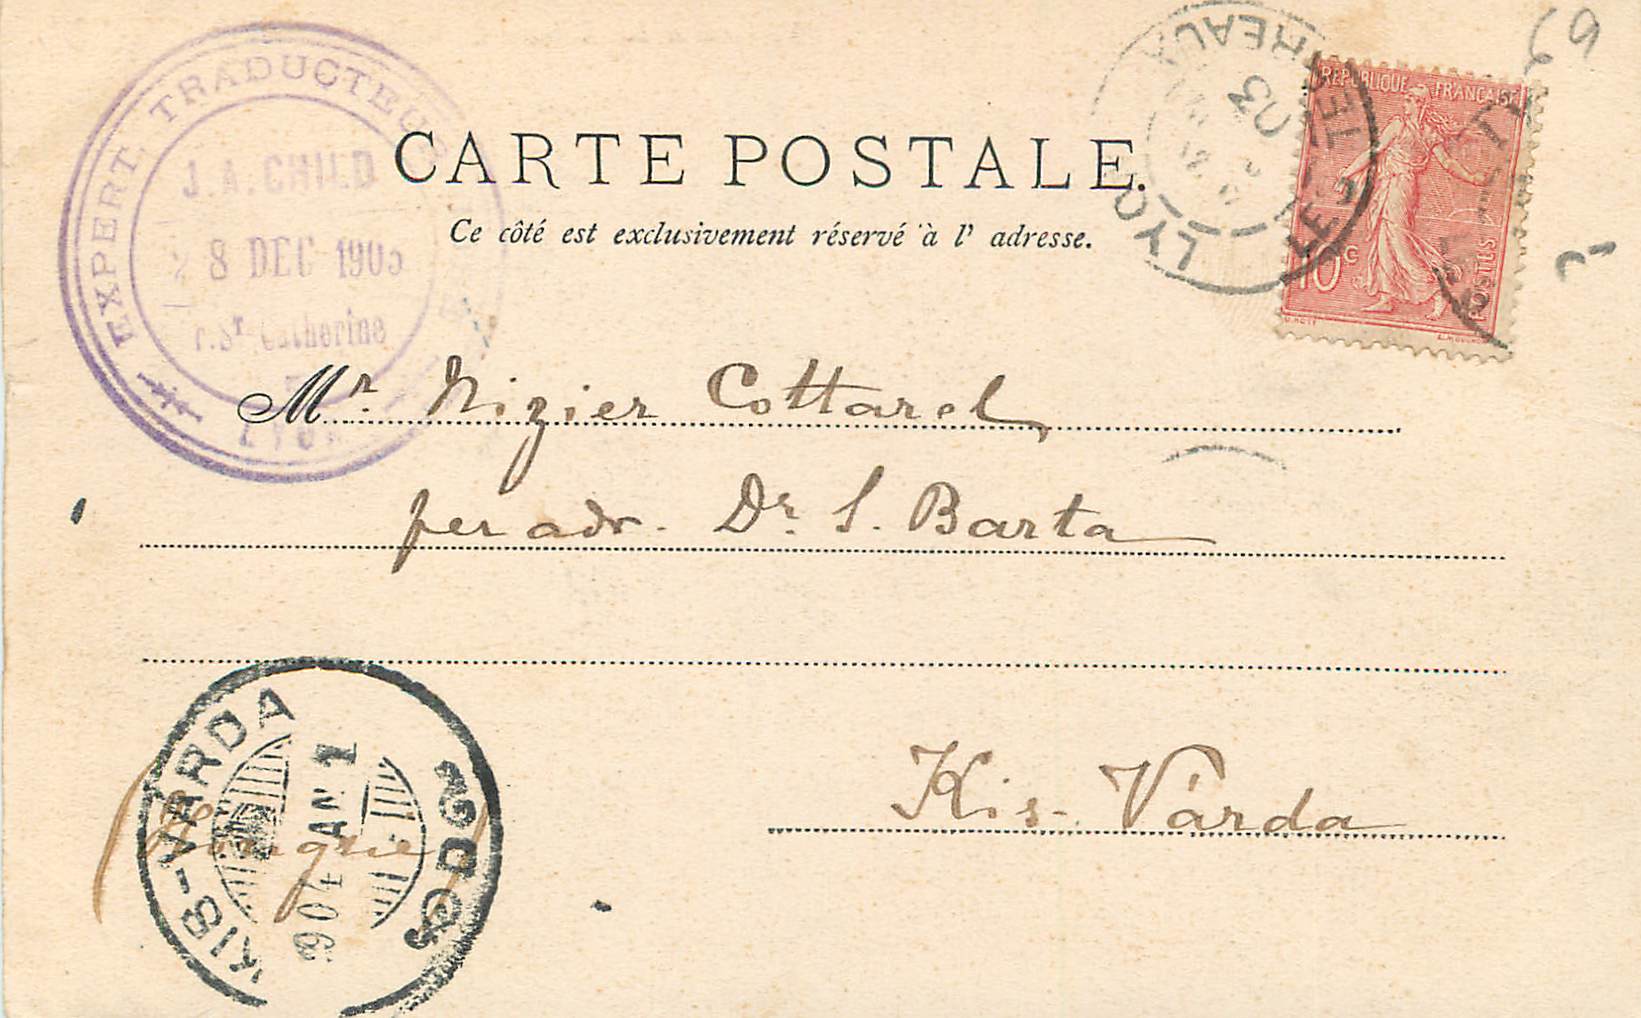 EXPERT, TRADUCTEUR
J. A. CHILD
8 DEC 1905
r. St. Catherine
LYON
LYON LES TERREAUX
03
REPUBLIQUE FRANÇAISE
10 c
POSTES
CARTE POSTALE.
Ce côté est exclusivement réservé à l' adresse.
Mr. Nizier Cottarel
per adr. Dr. S. Barta
Kis-Várda
(Hongrie)
KIS-VÁRDA
904 JAN 1